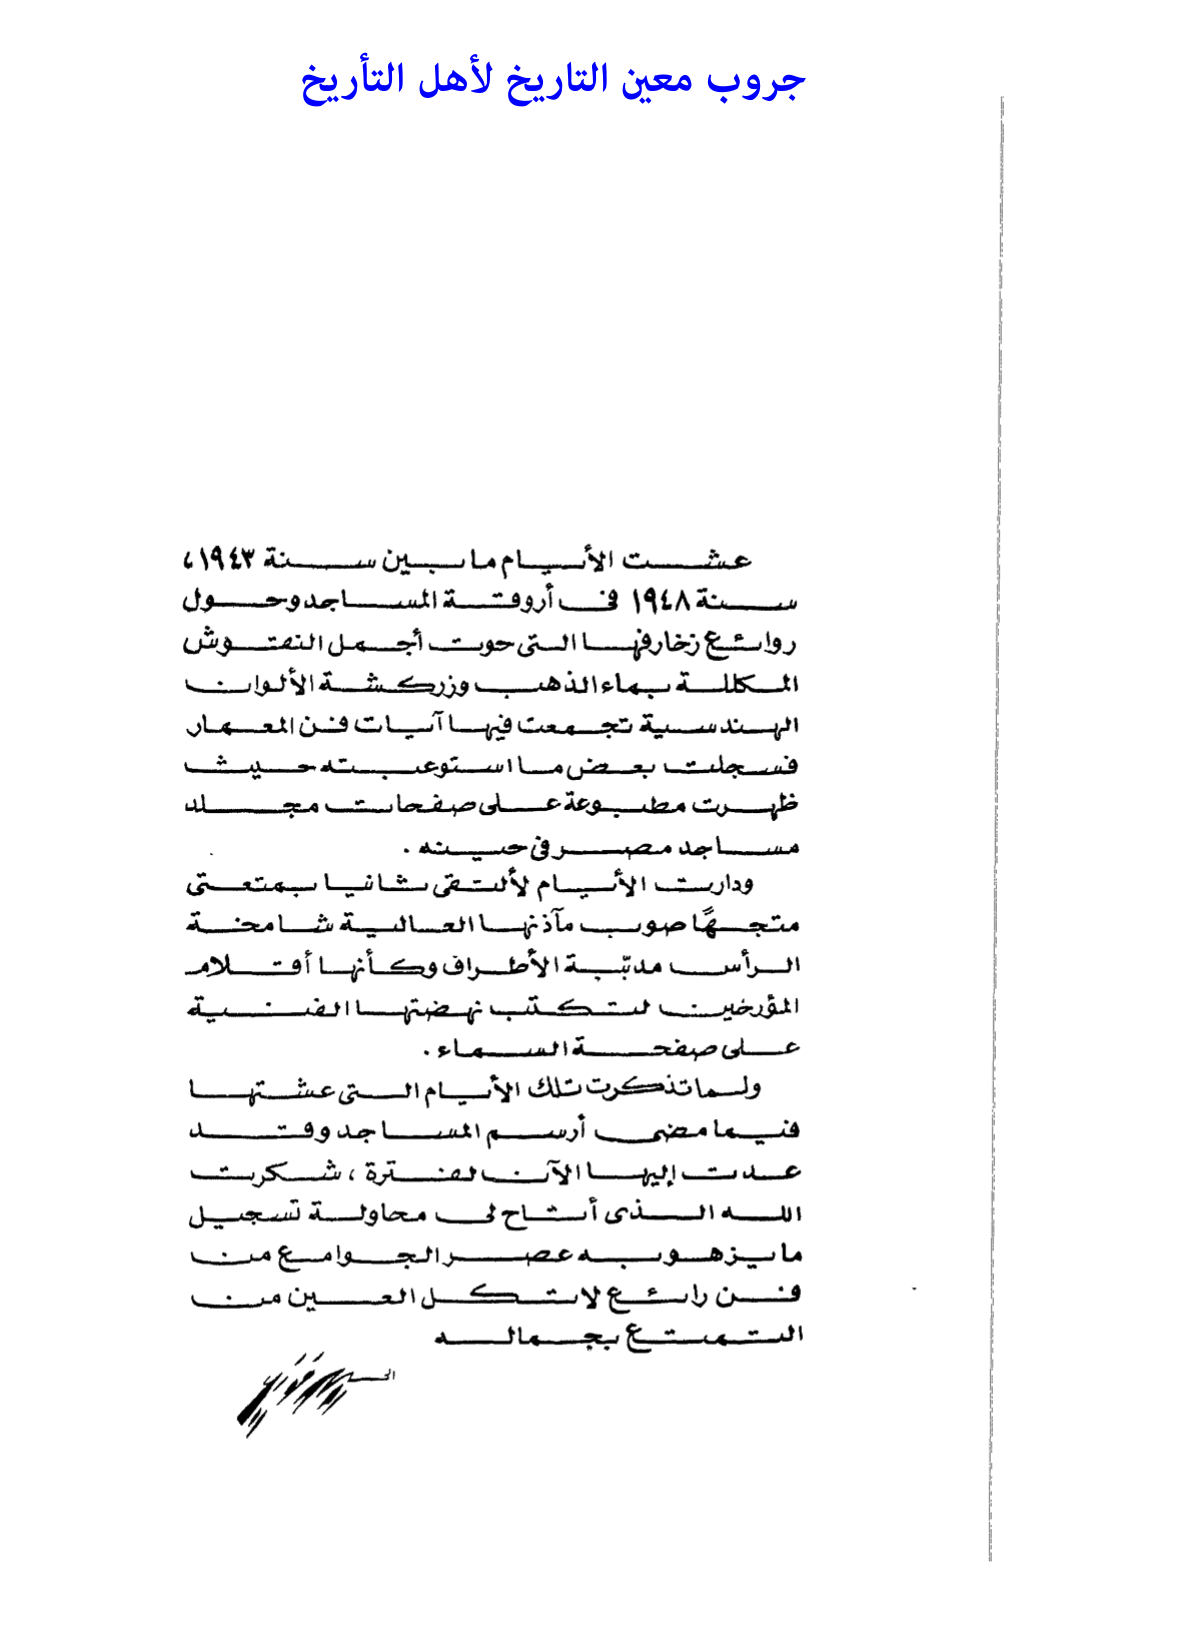 جروب معين التاريخ لأهل التأريخ
عشت الأيام ما بين سنة ١٩٤٣ ،
سنة ١٩٤٨ فى أروقة المساجد وحول
روائع زخارفها التى حوت أجمل النقوش
المكللة بماء الذهب وزركشة الألوان
الهندسية تجمعت فيها آيات فن المعمار
فسجلت بعض ما استوعبته حيث
ظهرت مطبوعة على صفحات مجلد
مساجد مصر فى حينه .
ودارت الأيام لألتقى ثانيا بمتعتى
متجهًا صوب مآذنها العالية شامخة
الرأس مدبّبة الأطراف وكأنها أقلام
المؤرخين لتكتب نهضتها الفنية
على صفحة السماء .
ولما تذكرت تلك الأيام التى عشتها
فيما مضى أرسم المساجد وقد
عدت إليها الآن لفترة ، شكرت
الله الذى أتاح لى محاولة تسجيل
ما يزهو به عصر الجوامع من
فن رائع لا تكل العين من
التمتع بجماله